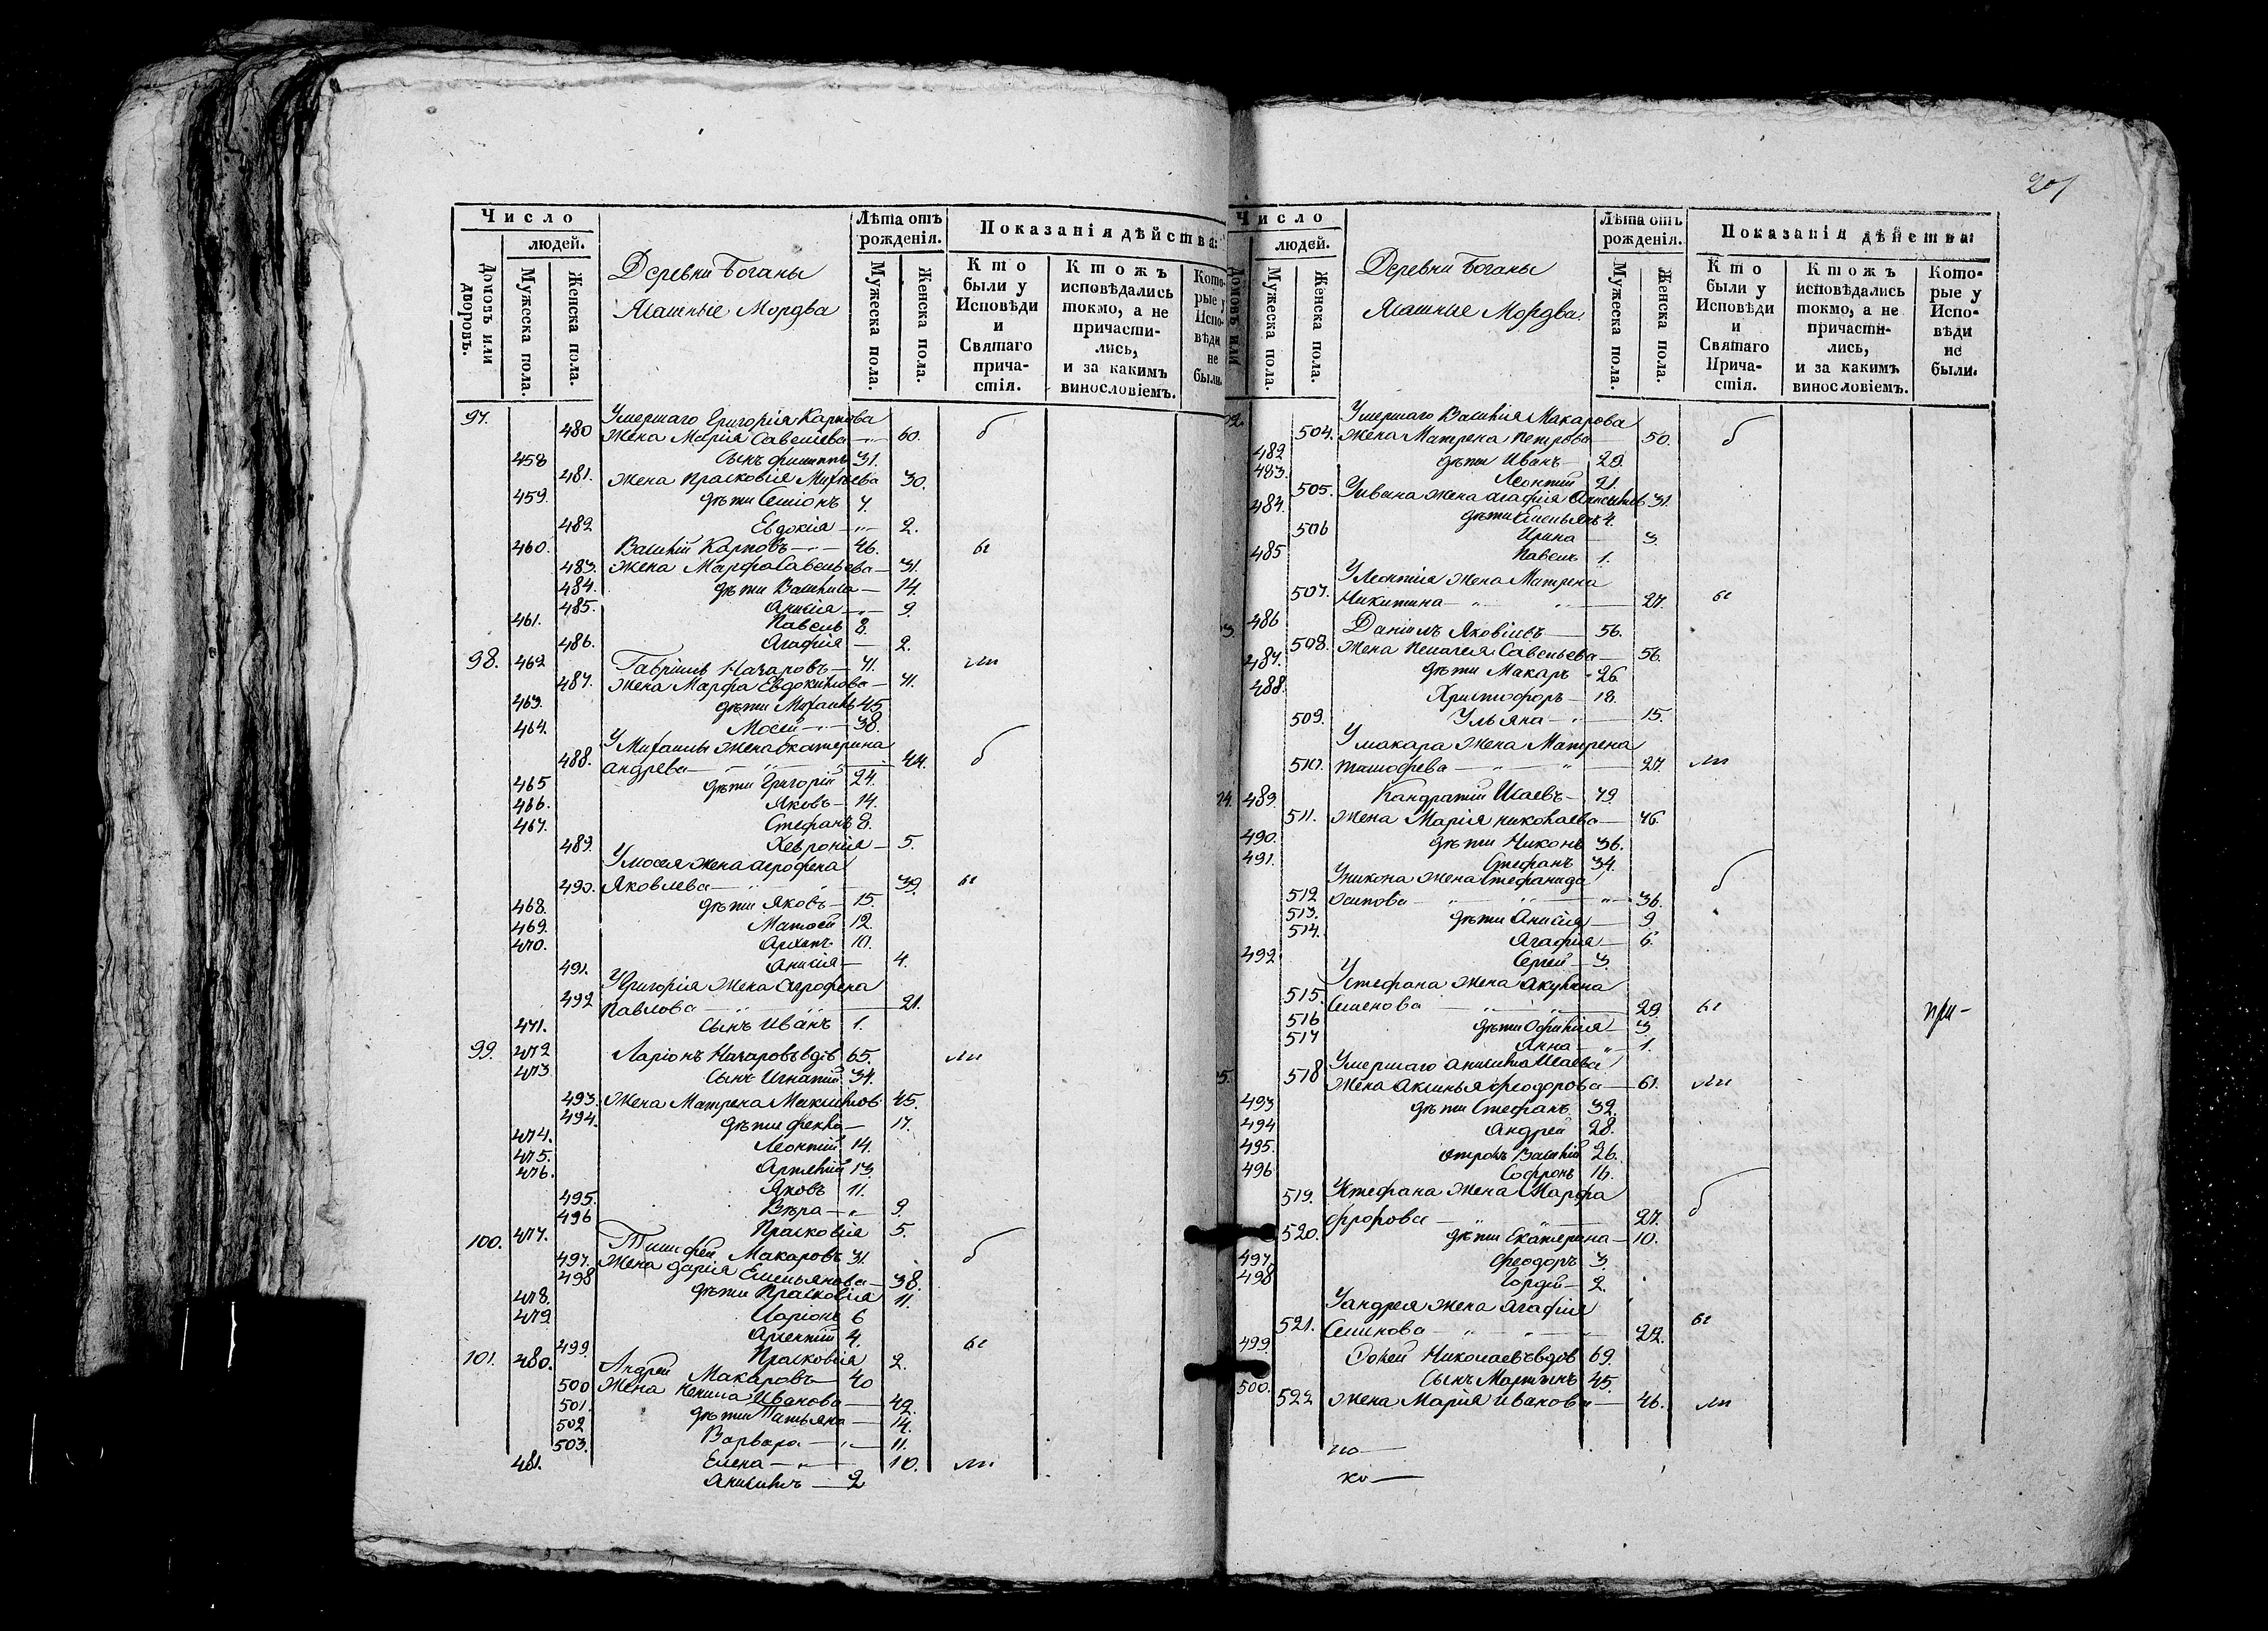 Число
людей.
Домовъ или дворовъ.
Мужеска пола.
Женска пола.
Деревни Боганы
Ясашные Мордва
Лѣта отъ рожденія.
Мужеска пола.
Женска пола.
Показанія дѣйства:
Кто были у Исповѣди и Святаго причастія.
Ктожъ исповѣдались токмо, а не причастились, и за какимъ винословіемъ.
Которые у Исповѣди не были.
97.
Умершаго Григорія Карпова
480 Жена Марія Савельева 60. б
458 сынъ Филиппъ 31.
481. Жена Прасковія Михѣева 30.
459. дѣти Семіонъ 7.
482 Евдокія 2.
460. Василій Карповъ 46. бы
483. Жена Марфа Савельева 31.
484. дѣти Василиса 14.
485. Анисія 9.
461. Павелъ 8.
486. Агафія 2.
98. 462 Гавріилъ Назаровъ 71. ли
487. Жена Марфа Евдокимова 71.
463. дѣти Михаилъ 45
464. Мосей 38.
У Михаилы жена Екатерина
488. Андрева 44. б
465 дѣти Григорій 24.
466. Яковъ 14.
467. Стефанъ 8.
489. Хевронія 5.
У Мосея жена Агрофена
490. Яковлева 39. бы
468. дѣти Яковъ 15.
469. Матвей 12.
470. Архипъ 10.
491. Анисія 4.
У Григорія жена Агрофена
492 Павлова 21.
471. сынъ Иванъ 1.
99. 472 Ларіонъ Назаровъ вдов 65. ли
473 сынъ Игнатій 34.
493. Жена Матрена Максимов 45.
494. дѣти Фекла 17.
474. Леонтій 14.
475. Артемій 13.
476. Яковъ 11.
495. Вѣра 9.
496 Прасковія 5.
100. 477. Тимофей Макаровъ 31. б
497. Жена Дарія Емельянова 38.
498 дѣти Прасковія 11.
478. Иларіонъ 6
479. Арсентій 4.
499. Прасковія 2. бы
101. 480. Андрей Макаровъ 40
500 Жена Ненила Иванова 42.
501. дѣти Татьяна 14.
502 Варвара 11.
503. Елена 10. ли
481. Анисимъ 2
201
Число
людей.
Домовъ или
Мужеска пола.
Женска пола.
Деревни Боганы
Ясашные Мордва
Лѣта отъ рожденія.
Мужеска пола.
Женска пола.
Показанія дѣйства:
Кто были у Исповѣди и Святаго Причастія.
Ктожъ исповѣдались токмо, а не причастились, и за какимъ винословіемъ.
Которые у Исповѣди не были.
Умершаго Василія Макарова
504. Жена Матрена Петрова 50. б
482 дѣти Иванъ 29.
483. Леонтій 21.
505. У Ивана жена Агафія 31.
484. дѣти Емельянъ 4.
506 Ирина 3.
485 Павелъ 1.
У Леонтія жена Матрена
507. Никитина 27. бы
486 Даніилъ Яковлевъ 56.
508. Жена Пелагея Савельева 56.
487. дѣти Макаръ 26.
488. Христофоръ 18.
509. Ульяна 15.
У Макара жена Матрена
510. Тимофева 27. ли
489. Кандратій Исаевъ 79.
511. Жена Марія Николаева 76.
490. дѣти Никонъ 36.
491. Стефанъ 34.
У Никона жена Стефанида
512 Осипова 36. б
513. дѣти Анисія 9
514. Агафия 6.
492 Сергей 3.
У Стефана жена Акулина
515. Семенова 29. бы при-
516 дѣти Офимія 3
517 Анна 1.
Умершаго Анисима Исаева
518 Жена Аксинья Феодорова 61. ли
493 дѣти Стефанъ 32.
494 Андрей 28.
495. Василій 26.
496 Софронъ 16.
У Стефана жена Марфа
519. Фролова 27. б
520. дѣти Екатерина 10.
497. Феодоръ 3.
498 Гордѣй 2.
У Андрея жена Агафия
521. Семинова 22. бы
499. Николаевъ вдов 69.
500. сынъ Мартынъ 45.
522 Жена Марія Иванов 46. ли
по
ко